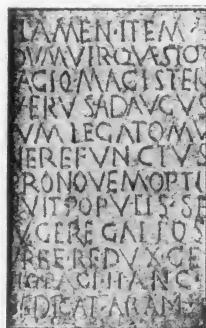 LAMEN·ITEM
DVMVIRQVÆSTO
AGIQMAGISTER
VERVSADAVGVS
VMLEGATOMV
NEREFVNCTVS
PRONOVEMOPTI
NVITPOPVLIS·SE
VGEREGALLOS
VRBEREDVXGE
NIOPAGIHANC
DEDICAT·ARAM